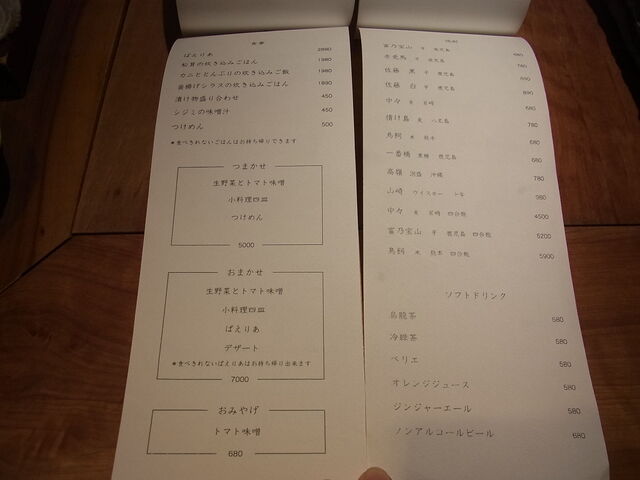 食事
ぱえりあ 2890
松茸の炊き込みごはん 1980
カニととんぶりの炊き込みご飯 1980
釜揚げシラスの炊き込みごはん 1890
漬け物盛り合わせ 450
シジミの味噌汁 450
つけめん 500
＊食べきれないごはんはお持ち帰りできます
つまかせ
生野菜とトマト味噌
小料理四皿
つけめん
5000
おまかせ
生野菜とトマト味噌
小料理四皿
ぱえりあ
デザート
＊食べきれないぱえりあはお持ち帰り出来ます
7000
おみやげ
トマト味噌
680
焼酎
富乃宝山 芋 鹿児島 680
芋 鹿児島 780
佐藤 黒 芋 鹿児島 890
佐藤 白 芋 鹿児島 890
中々 麦 宮崎 680
情け島 麦 八丈島 780
鳥飼 米 熊本 680
一番橋 黒糖 鹿児島 680
高嶺 泡盛 沖縄 780
山崎 ウイスキー 980
中々 麦 宮崎 四合瓶 4500
富乃宝山 芋 鹿児島 四合瓶 5200
鳥飼 米 熊本 四合瓶 5900
ソフトドリンク
烏龍茶 580
冷緑茶 580
ペリエ 580
オレンジジュース 580
ジンジャーエール 580
ノンアルコールビール 680